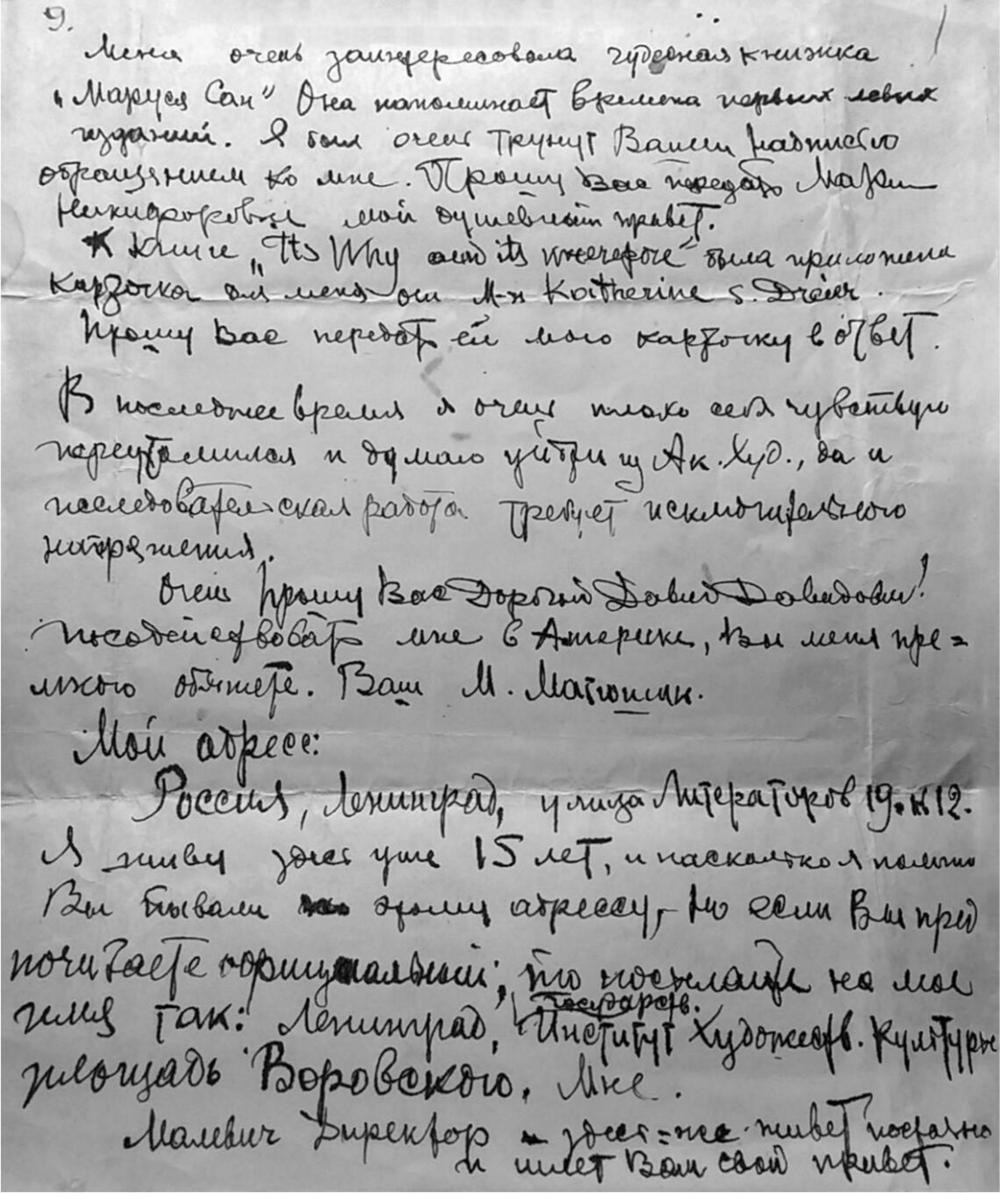 9.
Меня очень заинтересовала чудесная книжка
"Маруся Сан" Она напоминает времена первых левых
изданий. Я был очень тронут Вашей надписью
обращением ко мне. Прошу Вас передать Марии
Никифоровне мой душевный привет.
К книге "Its Why and its wherefore" была приложена
карточка для меня от М-н Katherine S. Dreier.
Прошу Вас передать ей мою карточку в ответ.
В последнее время я очень плохо себя чувствую
переутомился и думаю уйти из Ак. Худ., да и
исследовательская работа требует исключительного
напряжения.
Очень прошу Вас Дорогой Давид Давидович!
посодействовать мне в Америке, Вы меня пре=
много обяжете. Ваш М. Матюшин.
Мой адресс:
Россия, Ленинград, улица Литераторов 19. к 12.
Я живу здесь уже 15 лет, и насколько я помню
Вы бывали по этому адрессу, Но если Вы пред
почитаете официальный, то посылайте на мое
имя так: Ленинград, Государств. Институт Художеств. Культуры
площадь Воровского. Мне.
Малевич Директор – здесь=же живет постоянно
и шлет Вам свой привет.